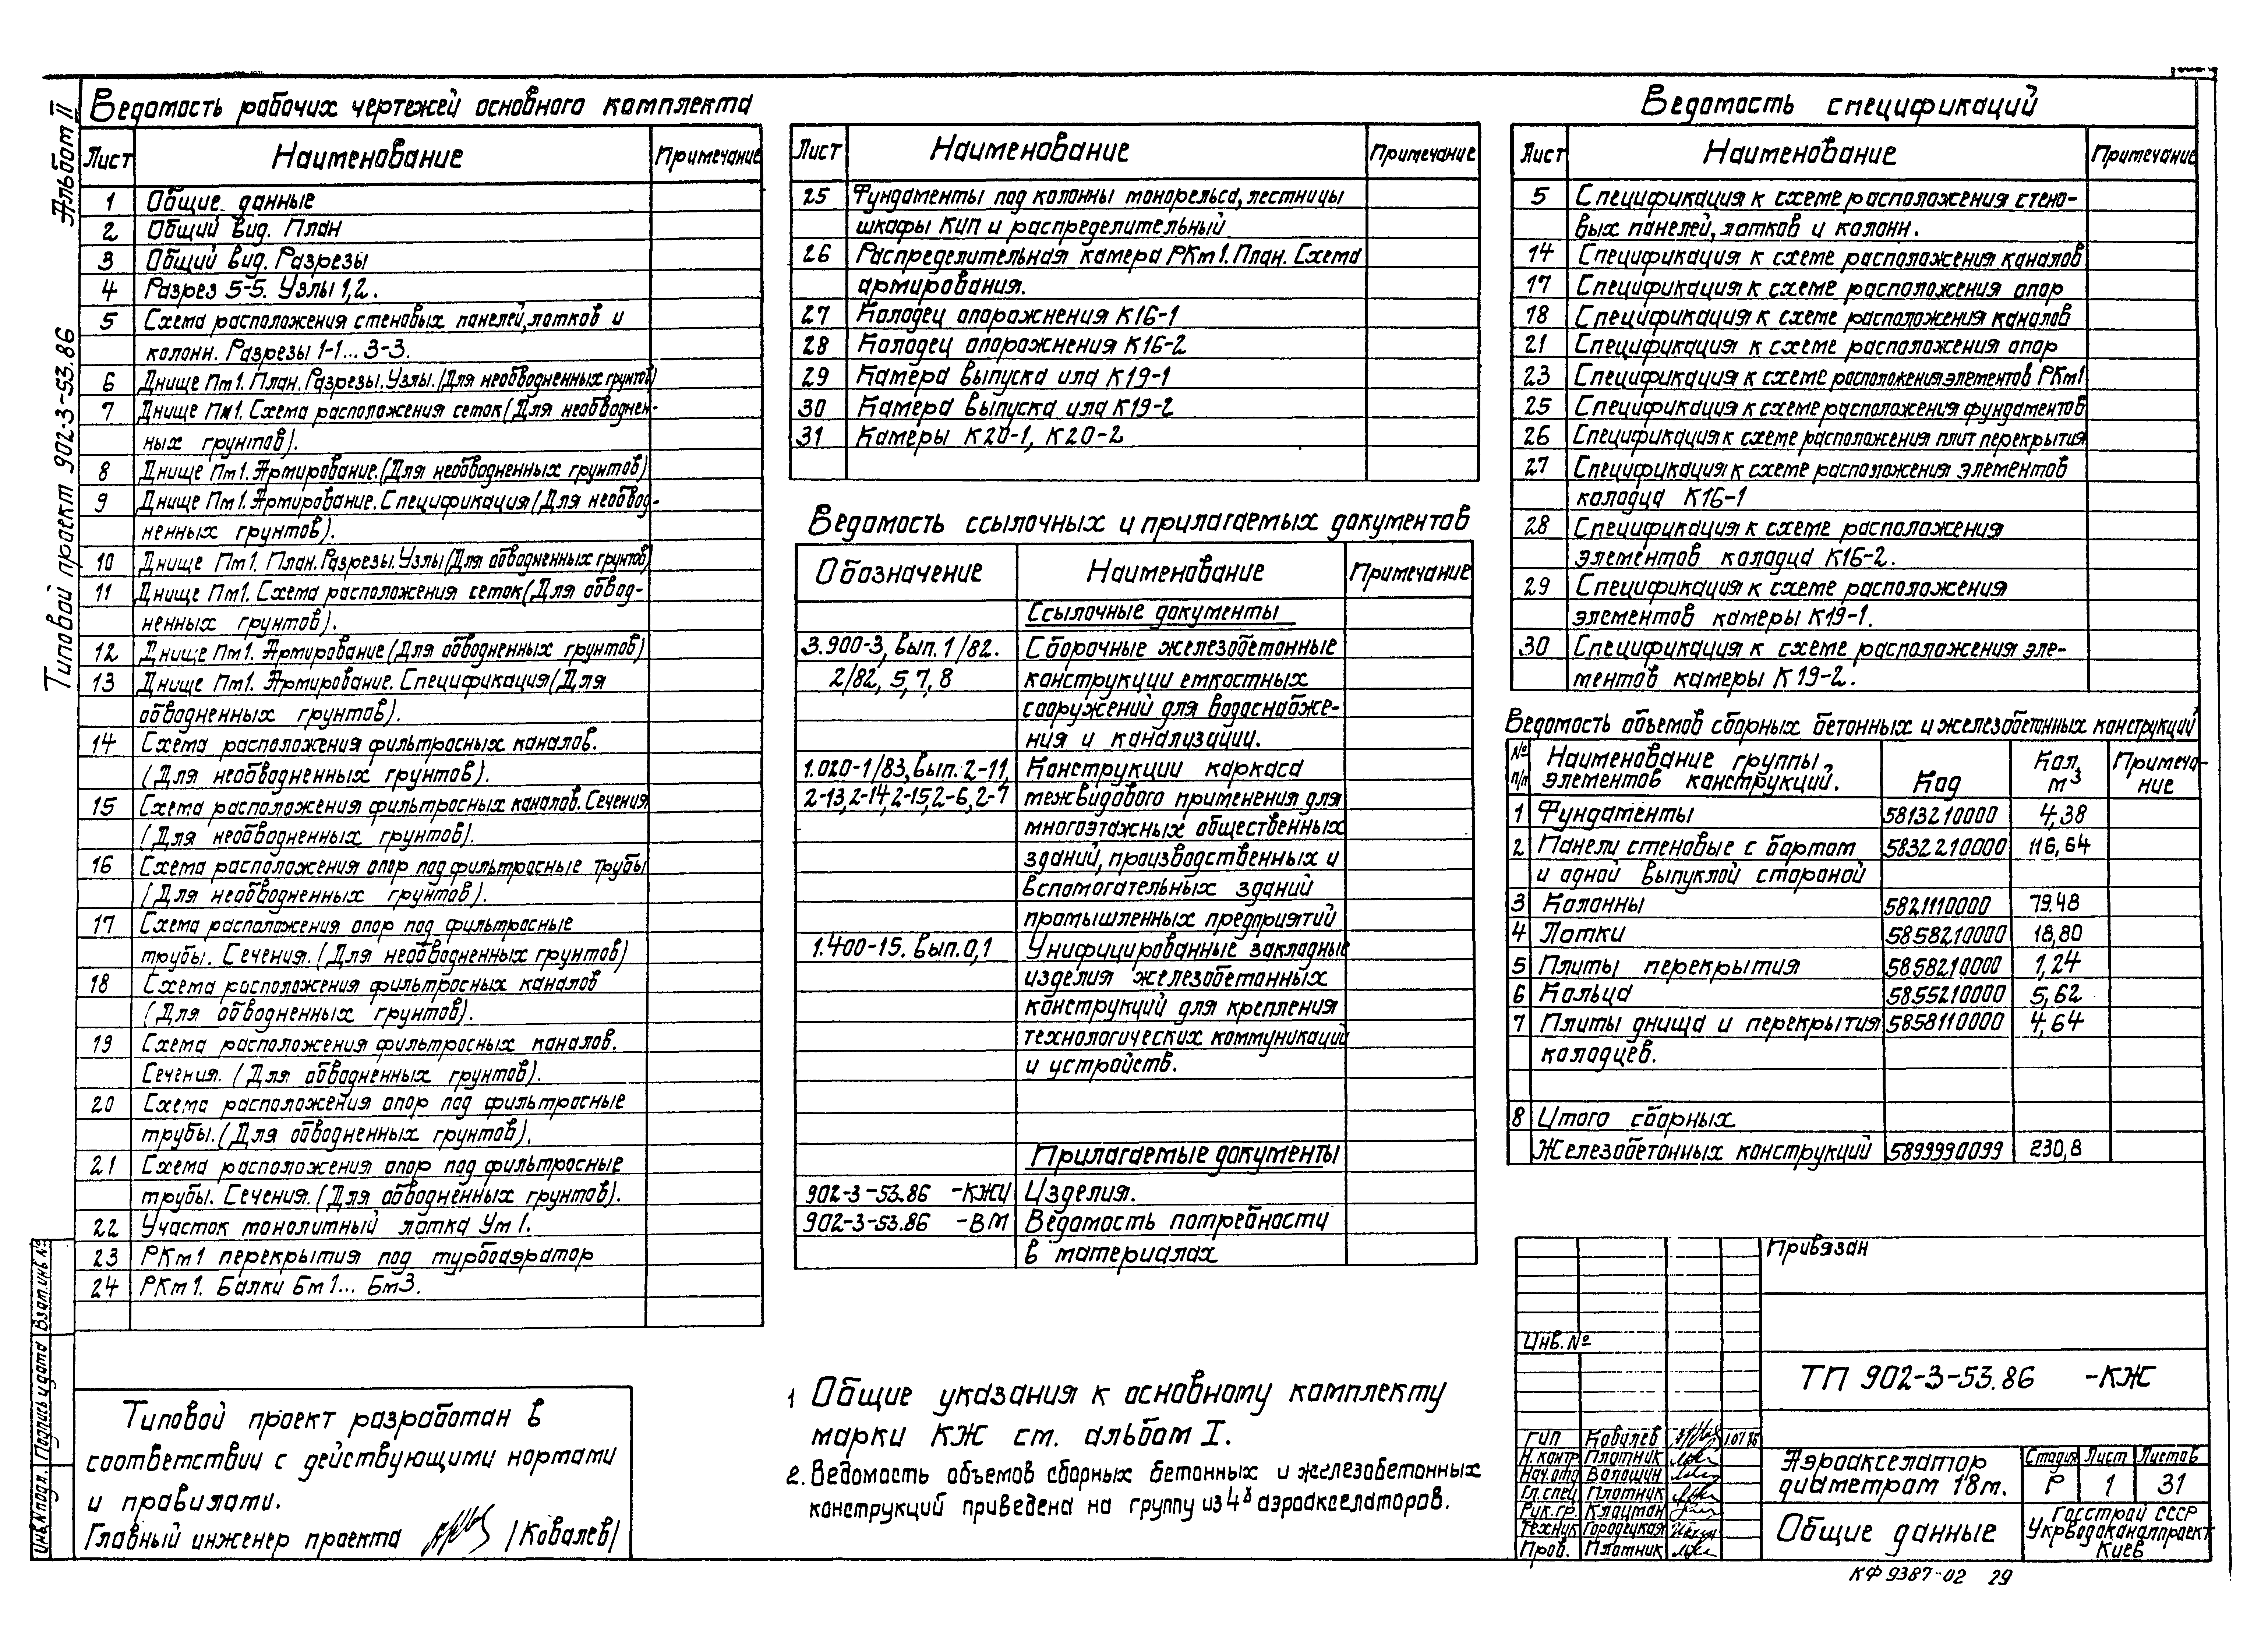 Альбом II
Типовой проект 902-3-53.86
Ведомость рабочих чертежей основного комплекта
Лист Наименование Примечание
1 Общие данные
2 Общий вид. План
3 Общий вид. Разрезы
4 Разрез 5-5. Узлы 1,2.
5 Схема расположения стеновых панелей, лотков и
колонн. Разрезы 1-1... 3-3.
6 Днище Пм1. План. Разрезы. Узлы. (Для необводненных грунтов)
7 Днище Пм1. Схема расположения сеток (Для необводнен-
ных грунтов).
8 Днище Пм1. Армирование. (Для необводненных грунтов)
9 Днище Пм1. Армирование. Спецификация (Для необвод-
ненных грунтов).
10 Днище Пм1. План. Разрезы. Узлы (Для обводненных грунтов)
11 Днище Пм1. Схема расположения сеток (Для обвод-
ненных грунтов).
12 Днище Пм1. Армирование (Для обводненных грунтов)
13 Днище Пм1. Армирование. Спецификация (Для
обводненных грунтов).
14 Схема расположения фильтросных каналов.
(Для необводненных грунтов).
15 Схема расположения фильтросных каналов. Сечения
(Для необводненных грунтов).
16 Схема расположения опор под фильтросные трубы
(Для необводненных грунтов).
17 Схема расположения опор под фильтросные
трубы. Сечения. (Для необводненных грунтов)
18 Схема расположения фильтросных каналов
(Для обводненных грунтов).
19 Схема расположения фильтросных каналов.
Сечения. (Для обводненных грунтов).
20 Схема расположения опор под фильтросные
трубы. (Для обводненных грунтов).
21 Схема расположения опор под фильтросные
трубы. Сечения. (Для обводненных грунтов).
22 Участок монолитный лотка Ум 1.
23 РКм1 перекрытия под турбоаэратор
24 РКм1. Балки Бм1... Бм3.
Типовой проект разработан в
соответствии с действующими нормами
и правилами.
Главный инженер проекта /Ковалев/
Инв.№подл. Подпись и дата Взам.инв.№
Лист Наименование Примечание
25 Фундаменты под колонны монорельса, лестницы
шкафы КИП и распределительный
26 Распределительная камера РКм1. План. Схема
армирования.
27 Колодец опоражнения К16-1
28 Колодец опоражнения К16-2
29 Камера выпуска ила К19-1
30 Камера выпуска ила К19-2
31 Камеры К20-1, К20-2
Ведомость ссылочных и прилагаемых документов
Обозначение Наименование Примечание
Ссылочные документы
3.900-3, вып. 1/82. Сборочные железобетонные
2/82, 5, 7, 8 конструкции емкостных
сооружений для водоснабже-
ния и канализации.
1.020-1/83, вып. 2-11, Конструкции каркаса
2-13, 2-14, 2-15, 2-6, 2-7 межвидового применения для
многоэтажных общественных
зданий, производственных и
вспомогательных зданий
промышленных предприятий
1.400-15. вып. 0,1 Унифицированные закладные
изделия железобетонных
конструкций для крепления
технологических коммуникаций
и устройств.
Прилагаемые документы
902-3-53.86 -КЖИ Изделия.
902-3-53.86 -ВМ Ведомость потребности
в материалах
1 Общие указания к основному комплекту
марки КЖ см. альбом I.
2. Ведомость объемов сборных бетонных и железобетонных
конструкций приведена на группу из 4х аэроакселаторов.
Ведомость спецификаций
Лист Наименование Примечание
5 Спецификация к схеме расположения стено-
вых панелей, лотков и колонн.
14 Спецификация к схеме расположения каналов
17 Спецификация к схеме расположения опор
18 Спецификация к схеме расположения каналов
21 Спецификация к схеме расположения опор
23 Спецификация к схеме расположения элементов РКм1
25 Спецификация к схеме расположения фундаментов
26 Спецификация к схеме расположения плит перекрытия
27 Спецификация к схеме расположения элементов
колодца К16-1
28 Спецификация к схеме расположения
элементов колодца К16-2.
29 Спецификация к схеме расположения
элементов камеры К19-1.
30 Спецификация к схеме расположения эле-
ментов камеры К19-2.
Ведомость объемов сборных бетонных и железобетонных конструкций
№ п/п Наименование группы элементов конструкций. Код Кол, м³ Примеча-ние
1 Фундаменты 5813210000 4,38
2 Панели стеновые с бортом 5832210000 116,64
и одной выпуклой стороной
3 Колонны 5821110000 79.48
4 Лотки 5858210000 18,80
5 Плиты перекрытия 5858210000 1,24
6 Кольца 5855210000 5,62
7 Плиты днища и перекрытия 5858110000 4,64
колодцев.
8 Итого сборных
Железобетонных конструкций 5899990099 230,8
Привязан
Инв.№
ТП 902-3-53.86 -КЖ
ГИП Ковалев 1.07.86
Н.контр Плотник
Нач.отд Волошин
Гл.спец Плотник
Рук.гр. Клацман
Техник Городецкая
Пров. Плотник
Аэроакселатор
диаметром 18м.
Стадия Лист Листов
Р 1 31
Общие данные
Госстрой СССР
Укрводоканалпроект
Киев
КФ 9387-02 29